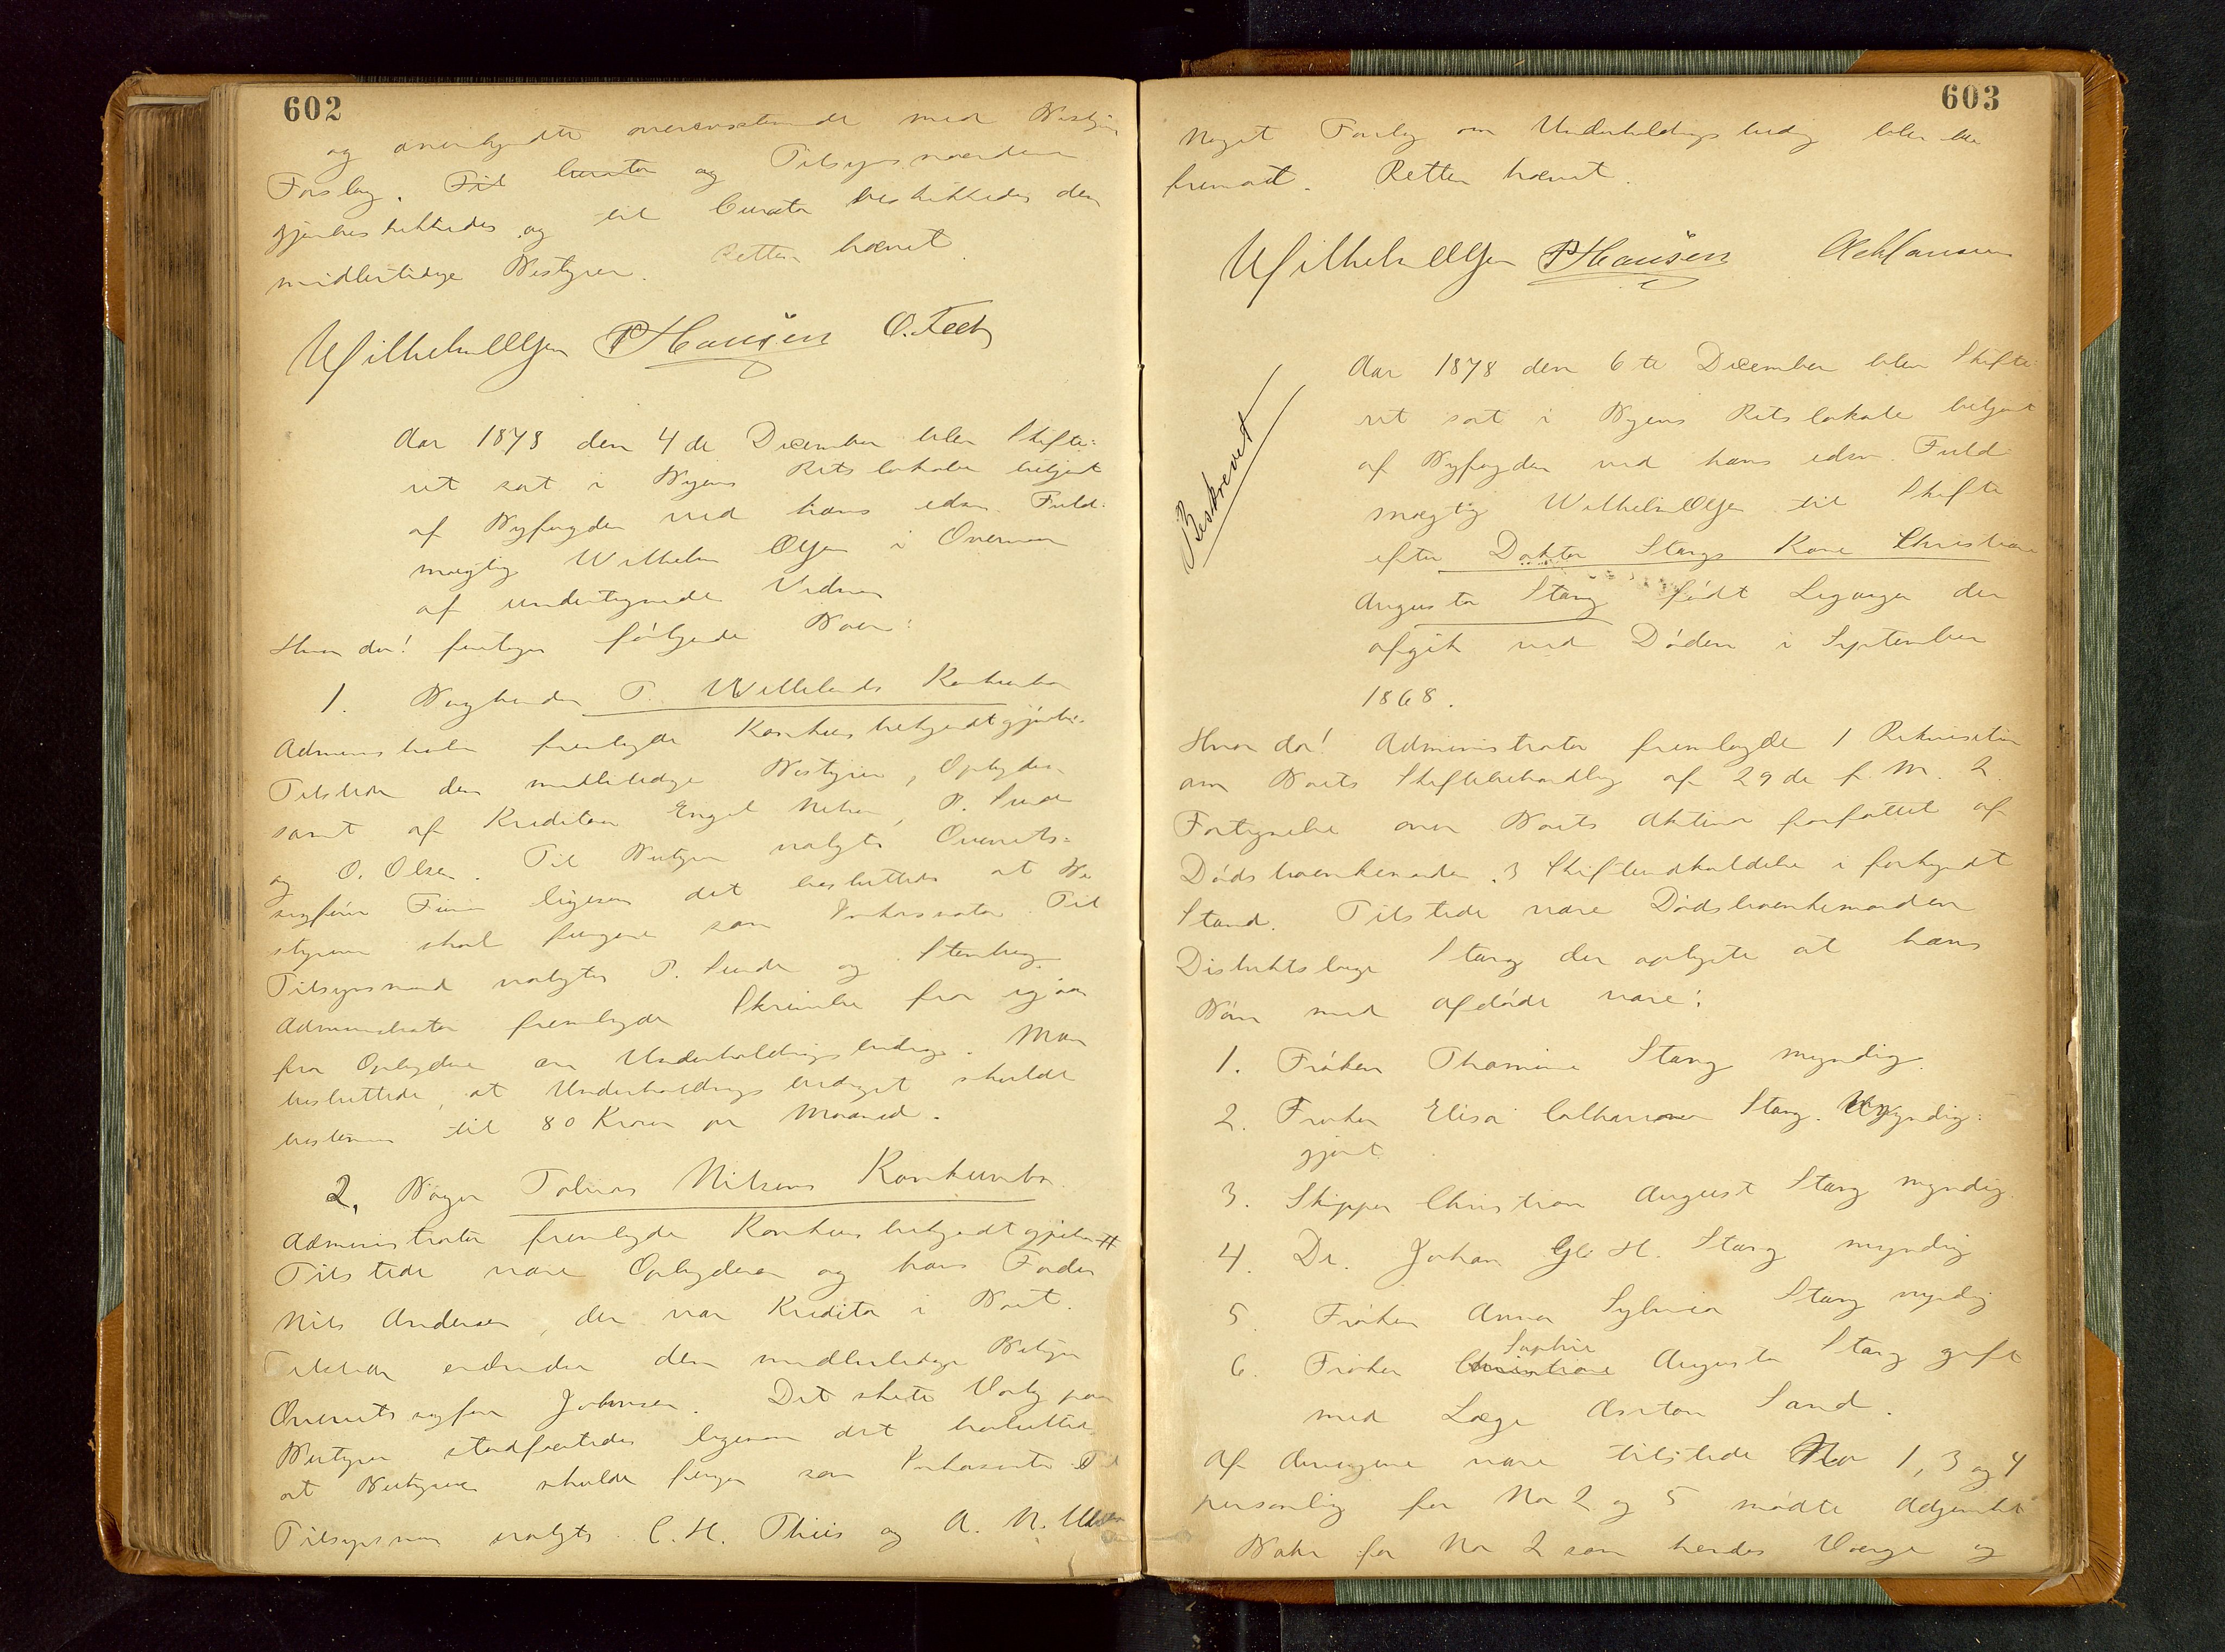 602
og overensstemmende med Bestyr
Forslag. Til Curator og Tilsynsmænd
gjenbeskikkedes og til Curator beskikkedes den
midlertidige Bestyrer. Retten hævet.
Wilhelm Olsen PHansen O. Fech
Aar 1878 den 4de December blev Skifte-
ret sat i Byens Retslokale betjent
af Byfogden ved hans edsv. Fuld-
mægtig Wilhelm Olsen i Overvær
af undertegnede Vidner
Hvor da! foretoges følgende Boer:
1. T. Konkursbo
Administrator fremlagde Konkursbekjendtgjørelse.
Tilstede den midlertidige Bestyrer, Opbyder
samt af Kreditorer Engel Nilsen, P. Sunde
og O. Olsen. Til Bestyrer valgtes Overrets-
sagfører ligesom det besluttedes at Be
styreren skal fungere som Inkassator. Til
Tilsynsmænd valgtes P. Sunde og Stenberg.
Administrator fremlagde Skrivelse fra igaar
fra Opbyderen om Underholdningsbidrag. Man
besluttede, at Underholdningsbidraget skulde
bestemmes til 80 Kroner pr Maaned.
2. Bager Tobias Nilsens Konkursbo.
Administrator fremlagde Konkursbekjendtgjørelse
Tilstede vare Opbyderen og hans Fader
Nils Andersen, der var Kreditor i Boet.
Tilstede endvidere den midlertidige Bestyrer
Overretssagfører Johnsen. Det skete Valg paa
Bestyrer stadfæstedes ligesom det besluttedes
at Bestyreren skulde fungere som Inkassator. Til
Tilsynsmænd valgtes C. H. Thiis og A. N.
603
Noget Forslag om Underholdningsbidrag blev ikke
fremsat. Retten hævet.
Wilhelm Olsen PHansen Hansen
Beskrevet
Aar 1878 den 6te December blev Skifte-
ret sat i Byens Retslokale betjent
af Byfogden ved hans edsv. Fuld-
mægtig Wilhelm Olsen til Skifte
efter Doktor Stangs Kone Christiane
Augusta Stang født der
afgik ved Døden i September
1868.
Hvor da! Administrator fremlagde 1 Rekvisition
om Boets Skiftebehandling af 29de f. M. 2
Fortegnelse over Boets Aktiva forfattet af
Dødsboenkemanden. 3 Skifteindkaldelse i forkyndt
Stand. Tilstede vare Dødsboenkemanden
Distriktslæge Stang der oplyste at hans
Børn med afdøde vare:
1. Frøken Thomine Stang myndig.
2. Frøken Elisa Catharine Stang. Umyndig-
gjort.
3. Skipper Christian August Stang myndig.
4. Dr. Johan H. Stang myndig
5. Frøken Anna Sylvia Stang myndig
6. Frøken Christiane Sophie Augusta Stang gift
med Læge Sand.
Af Arvingerne vare tilstede No 1, 3 og 4
personlig for No 2 og 5 mødte Adjunkt
for No 2 som hendes Værge og